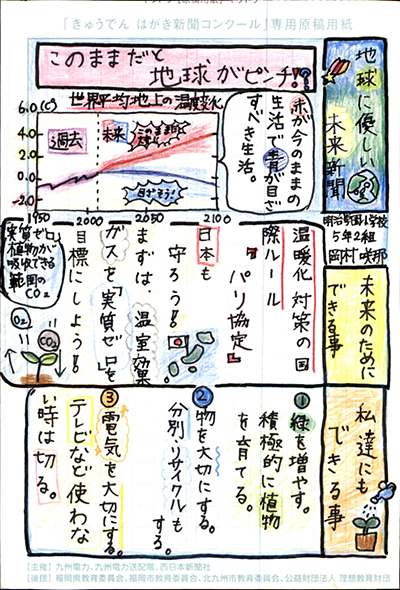 「きゅうでん はがき新聞コンクール」専用原稿用紙
地球に優しい
未来新聞
明治学園小学校
5年2組
岡村 咲那
このままだと
地球がピンチ!?
世界平均地上の温度変化
6.0(℃)
4.0
2.0
0
-2.0
過去
未来
このままの
生活
目ざそう!
1950
2000
2050
2100
赤が今のままの
生活で青が目ざ
すべき生活。
未来のために
できる事
温暖化対策の国
際ルール
『パリ協定』
日本も
守ろう!!
まずは、温室効果
ガスを「実質ゼロ」を
目標にしよう!!
実質ゼロ
植物が
吸収できる
範囲の
CO2
O2
CO2
私達にも
できる事
①緑を増やす。
積極的に植物
を育てる。
②物を大切にする。
分別・リサイクルも
する。
③電気を大切にする。
テレビなど使わな
い時は切る。
【主催】九州電力、九州電力送配電、西日本新聞社
【後援】福岡県教育委員会、福岡市教育委員会、北九州市教育委員会、公益財団法人 理想教育財団